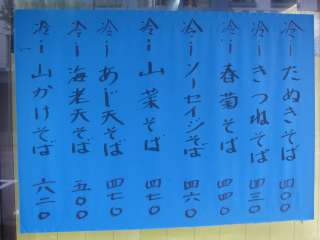 冷したぬきそば 四〇〇
冷しきつねそば 四三〇
冷し春菊そば 四四〇
冷しソーセイジそば 四六〇
冷し山菜そば 四七〇
冷しあじ天そば 四七〇
冷し海老天そば 五〇〇
冷し山かけそば 六二〇